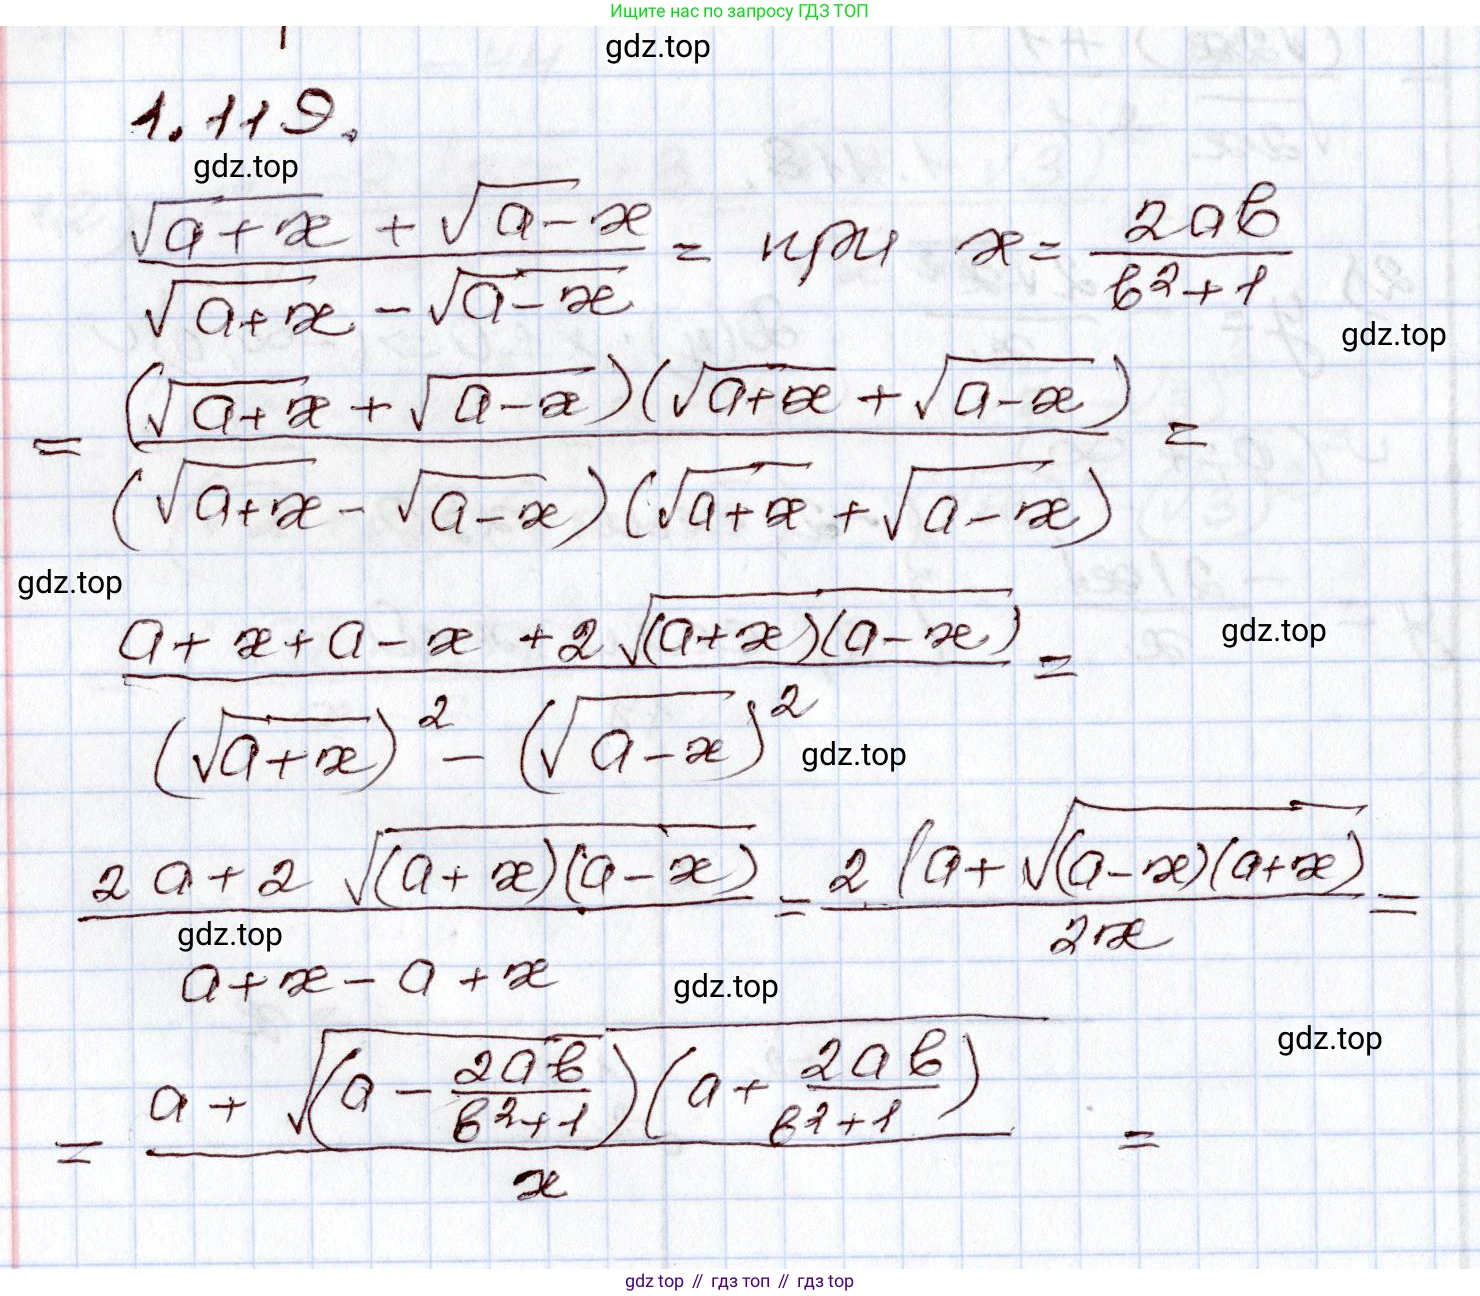 Ищите нас по запросу ГДЗ ТОП
gdz.top
1.119.
gdz.top
(√(a+x) + √(a-x)) / (√(a+x) - √(a-x)) = при x = 2ab / (b²+1)
gdz.top
= (√(a+x) + √(a-x))(√(a+x) + √(a-x)) / (√(a+x) - √(a-x))(√(a+x) + √(a-x)) =
gdz.top
(a+x+a-x+2√((a+x)(a-x))) / ((√(a+x))² - (√(a-x))²) =
gdz.top
gdz.top
(2a+2√((a+x)(a-x))) / (a+x-a+x) = 2(a+√((a-x)(a+x)) / 2x =
gdz.top
gdz.top
gdz.top
= (a+√((a - 2ab/(b²+1))(a + 2ab/(b²+1)))) / x =
gdz top // гдз топ // гдз top